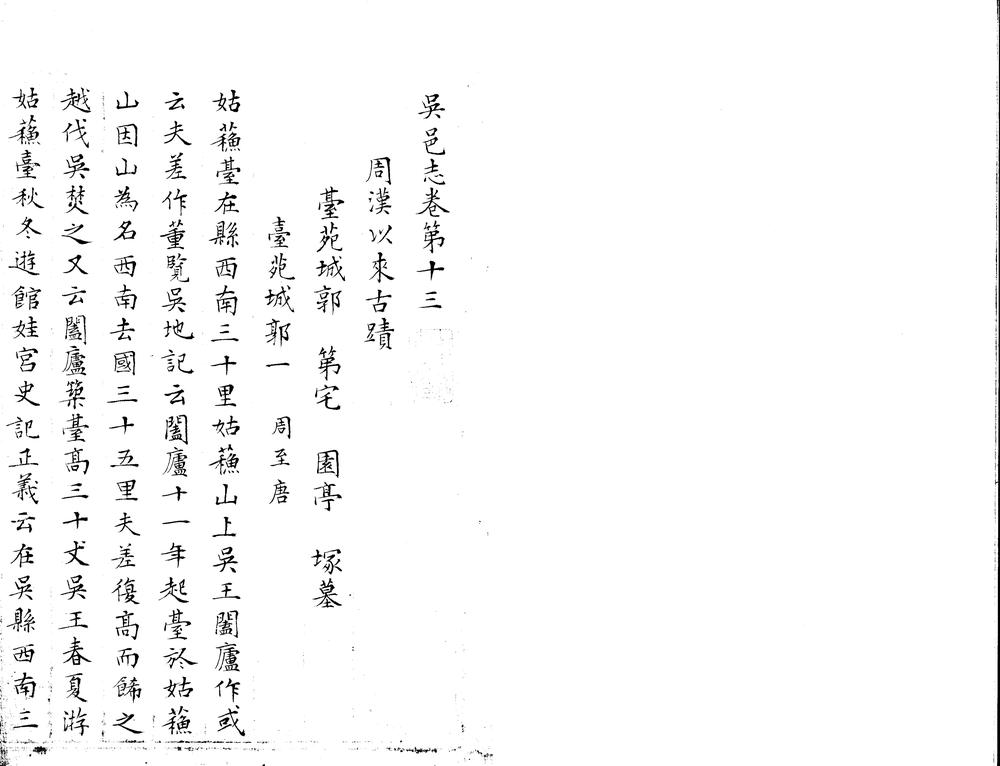 吳邑志卷第十三
周漢以來古蹟
臺苑城郭　第宅　園亭　塚墓
臺苑城郭一　周至唐
姑蘓臺在縣西南三十里姑蘓山上吳王闔廬作或
云夫差作董覽吳地記云闔廬十一年起臺於姑蘓
山因山為名西南去國三十五里夫差復髙而餙之
越伐吳焚之又云闔廬築臺髙三十丈吳王春夏游
姑蘓臺秋冬遊館娃宮史記正義云在吳縣西南三